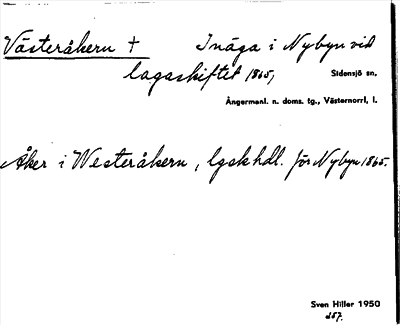 Västeråkern † Inäga i Nybyn vid
lagaskiftet 1865, Sidensjö sn,
Ångermanl. n. doms. tg., Västernorrl. l.
Åker i Westeråkern, lgskhdl. för Nybyn 1865.
Sven Hiller 1950
d57.